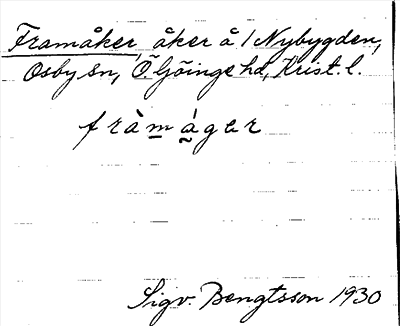 Framåker, åker å 1 Nybygden,
Osby sn, Ö Göinge hd, Krist. l.
fràmágar
Sigv. Bengtsson 1930